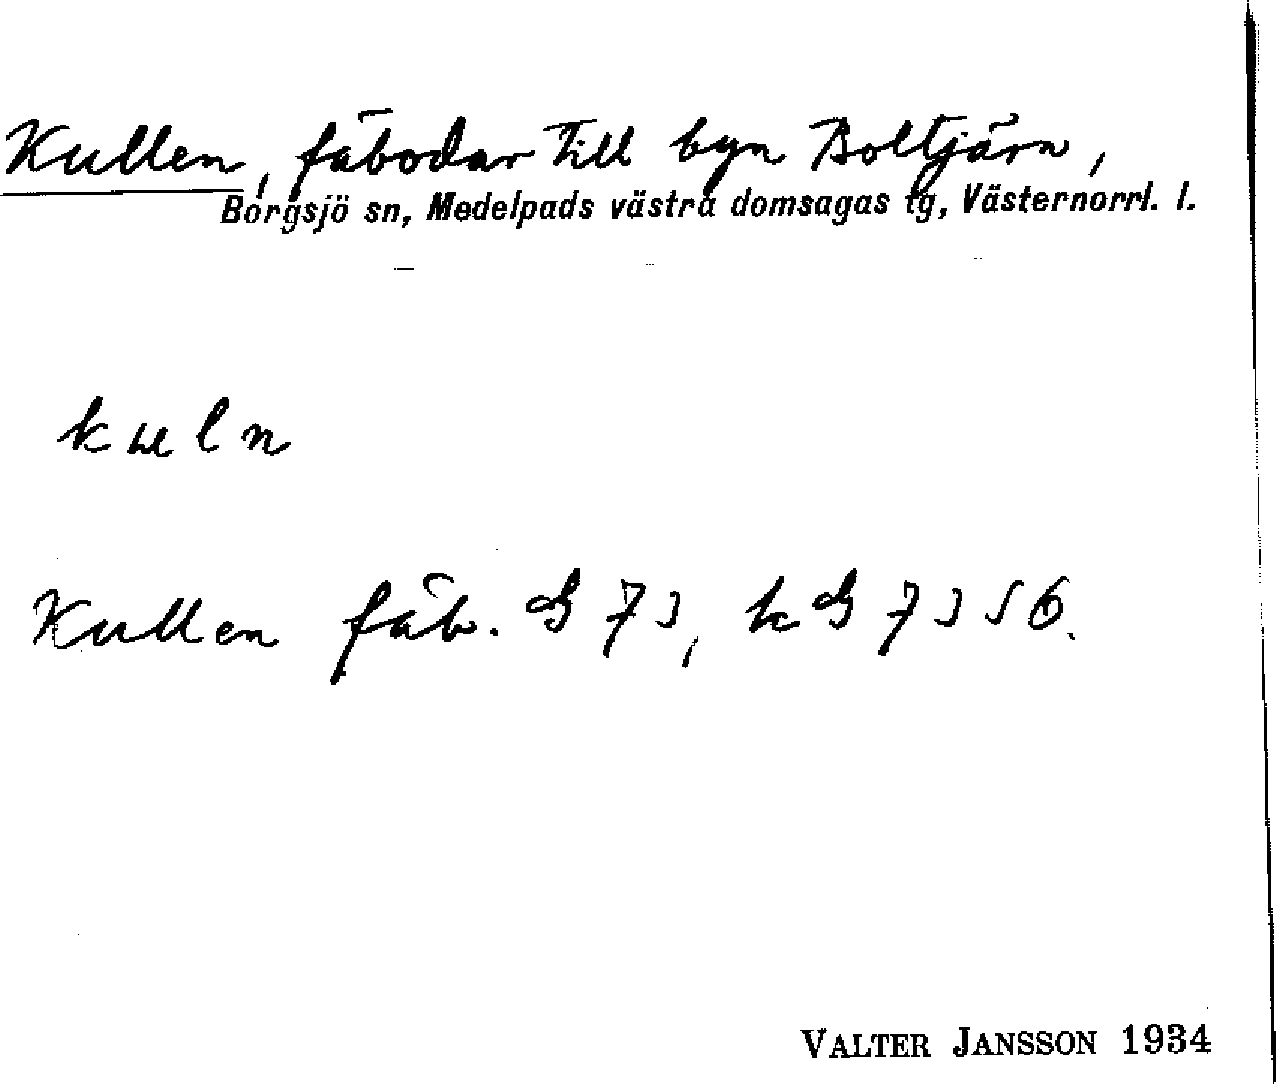 Kullen, fäbodar till byn Boltjärn,
Borgsjö sn, Medelpads västra domsagas tg, Västernorrl. l.
kuln
Kullen fäb. G 73, k G 7356.
VALTER JANSSON 1934